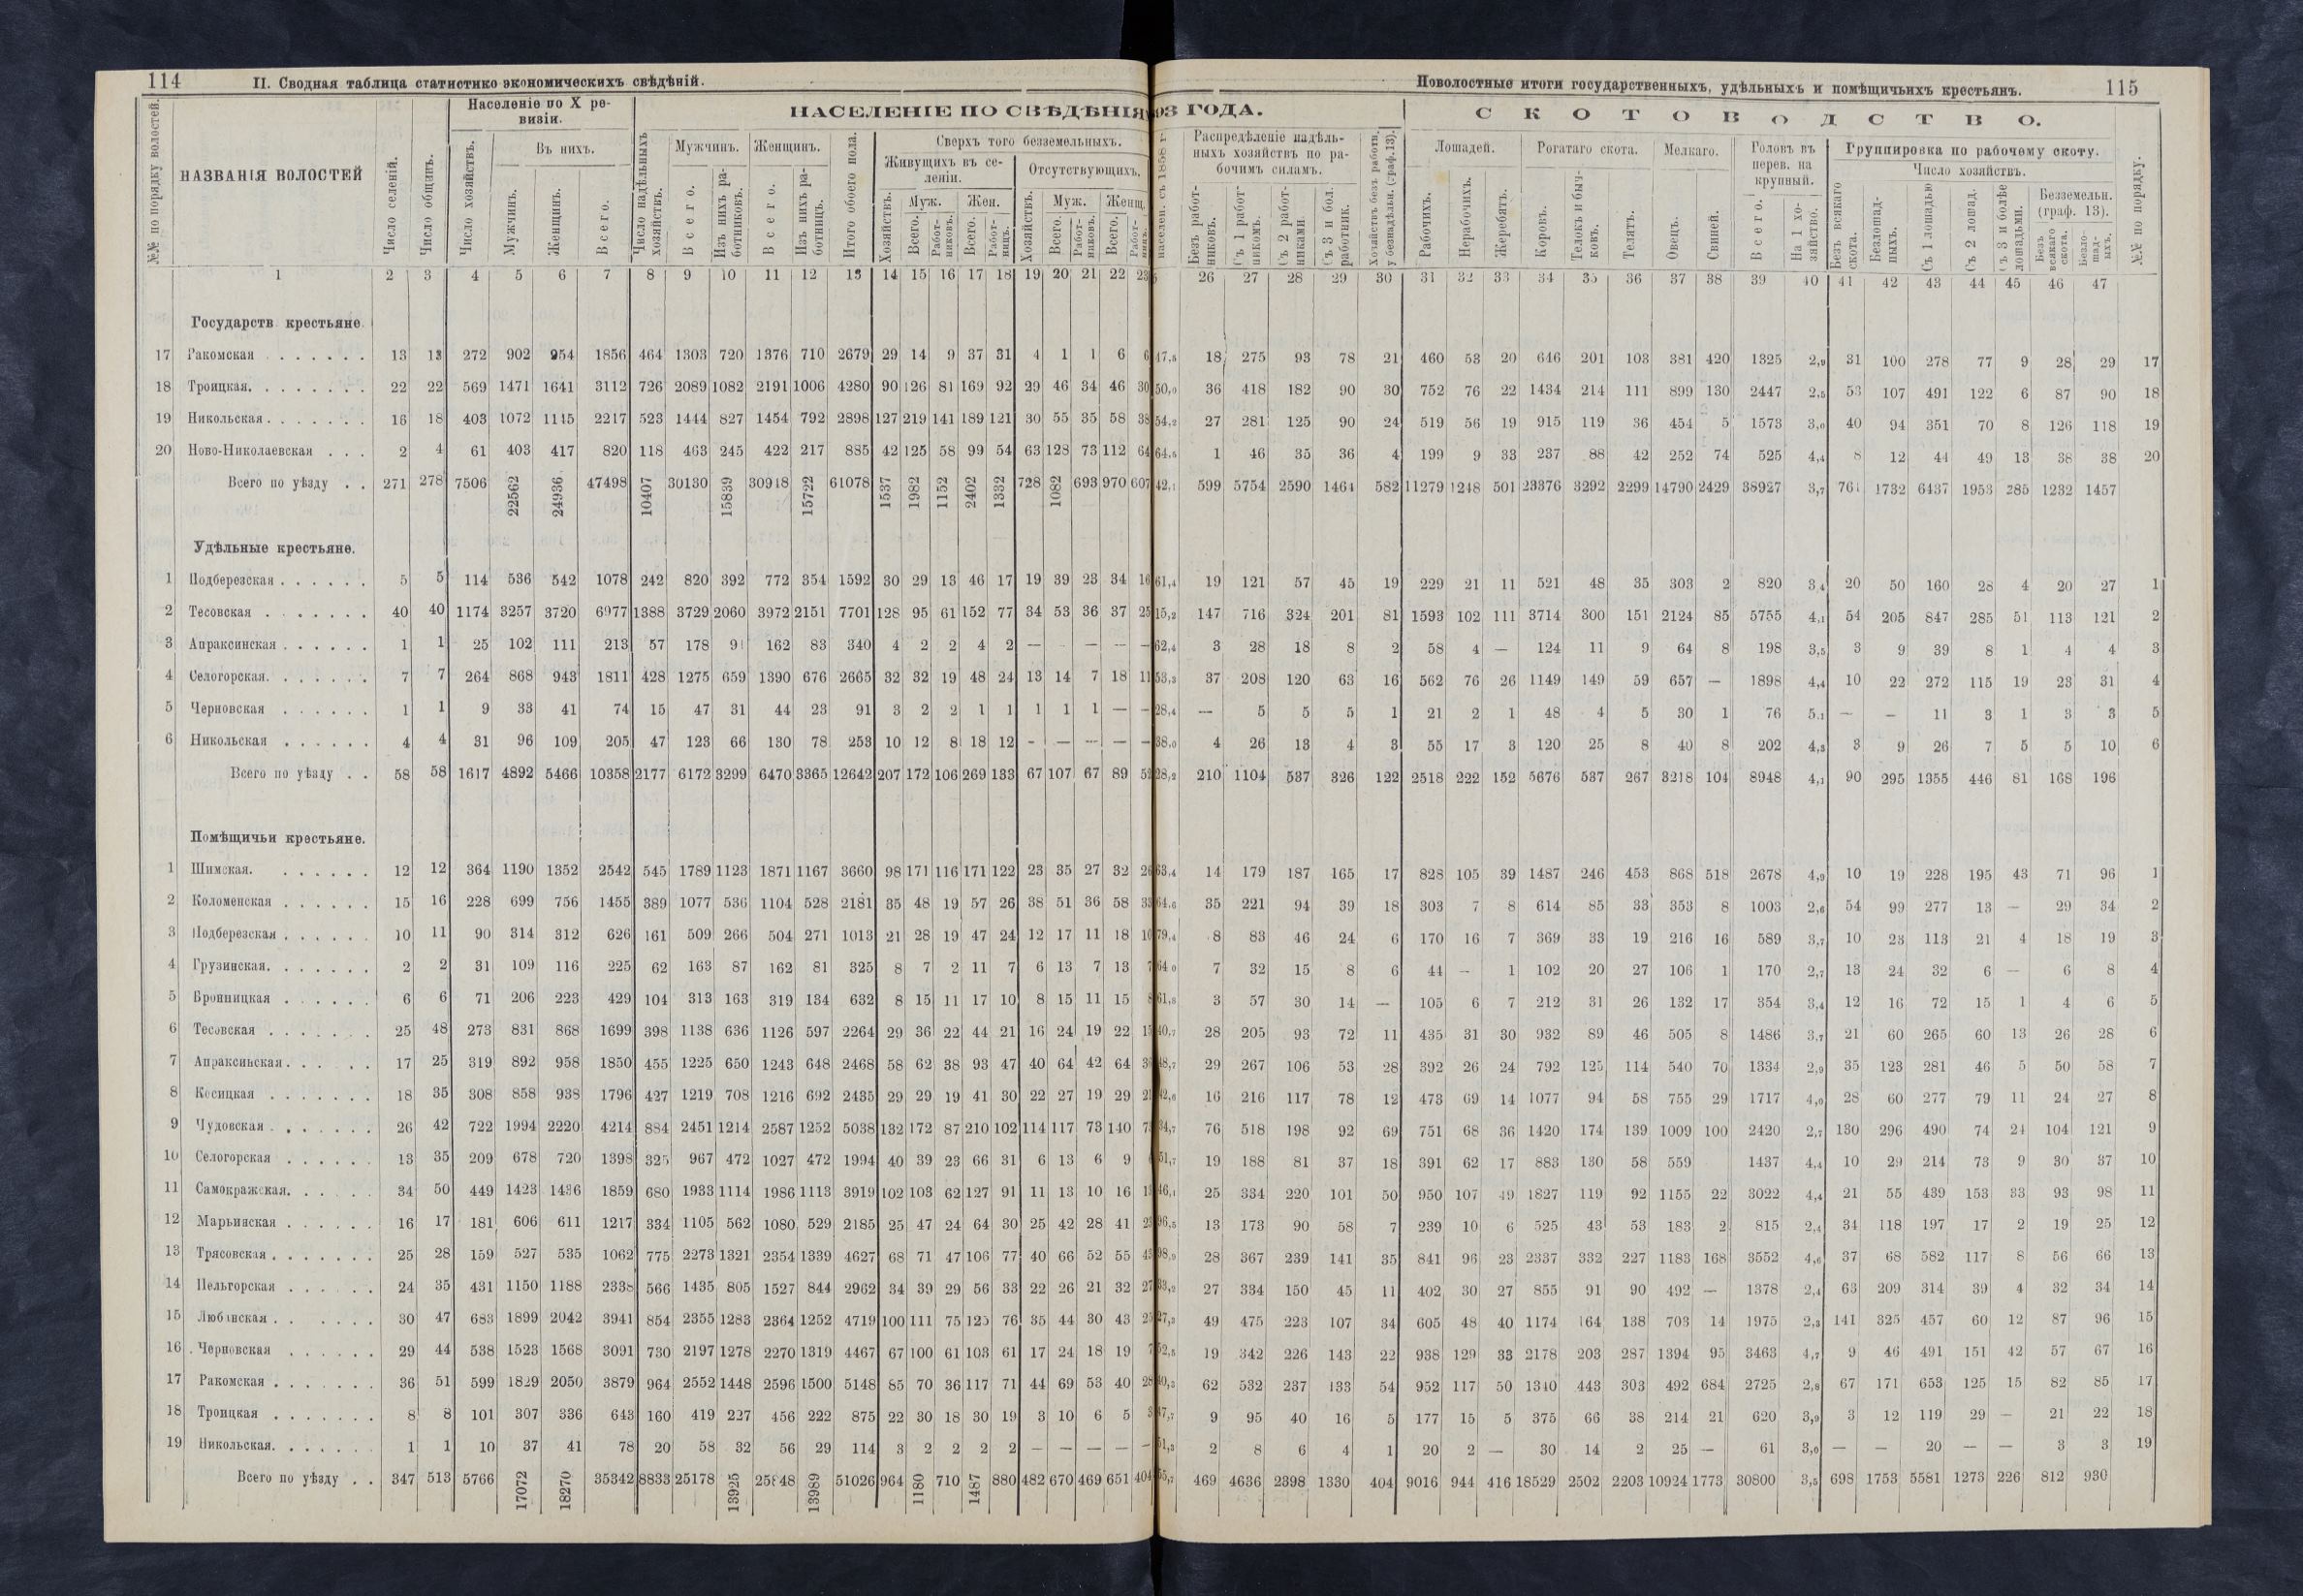 114
II. Сводная таблица статистико-экономическихъ свѣдѣній.
Поволостные итоги государственныхъ, удѣльныхъ и помѣщичьихъ крестьянъ.
115
№№ по порядку волостей.
НАЗВАНІЯ ВОЛОСТЕЙ
Число селеній.
Число общинъ.
Населеніе по X ревизіи.
Число хозяйствъ.
Въ нихъ.
Мужчинъ.
Женщинъ.
Всего.
НАСЕЛЕНІЕ ПО СВѢДѢНІЯ
ГОДА.
Число надѣльныхъ хозяйствъ.
Мужчинъ.
Женщинъ.
Всего.
Изъ нихъ работниковъ.
Всего.
Изъ нихъ работницъ.
Итого обоего пола.
Сверхъ того безземельныхъ.
Живущихъ въ селеніи.
Отсутствующихъ.
Хозяйствъ.
Муж.
Жен.
Муж.
Женщ.
Распредѣленіе надѣльныхъ хозяйствъ по рабочимъ силамъ.
Безъ работниковъ.
Съ 1 работникомъ.
Съ 2 работниками.
Съ 3 и бол. работник.
СКОТОВОДСТВО.
Лошадей.
Рогатаго скота.
Мелкаго.
Головъ въ перев. на крупный.
Группировка по рабочему скоту.
Число хозяйствъ.
Безземельн. (граф. 13).
Рабочихъ.
Нерабочихъ.
Жеребятъ.
Коровъ.
Телокъ и бычковъ.
Телятъ.
Овецъ.
Свиней.
Всего.
На 1 хозяйство.
Безъ всякаго скота.
Безлошадныхъ.
Съ 1 лошадью
Съ 2 лошад.
Съ 3 и болѣе лошадьми.
Безъ всякаго скота.
Безлошадныхъ.
№№ по порядку.
1 2 3 4 5 6 7 8 9 10 11 12 13 14 15 16 17 18 19 20 21 22 23 26 27 28 29 30 31 32 33 34 35 36 37 38 39 40 41 42 43 44 45 46 47
Государств. крестьяне.
17 Ракомская 13 13 272 902 954 1856 464 1303 720 1376 710 2679 29 14 9 37 31 4 1 1 6 6 47,8 18 275 93 78 21 460 53 20 646 201 103 381 420 1325 2,9 31 100 278 77 9 28 29 17
18 Троицкая. 22 22 569 1471 1641 3112 726 2089 1082 2191 1006 4280 90 126 81 169 92 29 46 34 46 30 50,0 36 418 182 90 30 752 76 22 1434 214 111 899 130 2447 2,5 53 107 491 122 6 87 90 18
19 Никольская 16 18 403 1072 1145 2217 523 1444 827 1454 792 2898 127 219 141 189 121 30 55 35 58 38 54,2 27 281 125 90 24 519 56 19 915 119 36 454 5 1573 3,0 40 94 351 70 8 126 118 19
20 Ново-Николаевская 2 4 61 403 417 820 118 463 245 422 217 885 42 125 58 99 54 63 128 73 112 64 64,5 1 46 35 36 4 199 9 33 237 88 42 252 74 525 4,4 8 12 44 49 13 38 38 20
Всего по уѣзду 271 278 7506 22562 24936 47498 10407 30130 15839 30918 15722 61078 1537 1982 1152 2402 1332 728 1082 693 970 607 42,1 599 5754 2590 1464 582 11279 1248 501 23376 3292 2299 14790 2429 38927 3,7 761 1732 6437 1953 285 1232 1457
Удѣльные крестьяне.
1 Подберезская 5 5 114 536 542 1078 242 820 392 772 354 1592 30 29 13 46 17 19 39 23 34 16 61,4 19 121 57 45 19 229 21 11 521 48 35 303 2 820 3,4 20 50 160 28 4 20 27 1
2 Тесовская 40 40 1174 3257 3720 6977 1388 3729 2060 3972 2151 7701 128 95 61 152 77 34 53 36 37 25 15,2 147 716 324 201 81 1593 102 111 3714 300 151 2124 85 5755 4,1 54 205 847 285 51 113 121 2
3 Апраксинская 1 1 25 102 111 213 57 178 91 162 83 340 4 2 2 4 2 — — — — 62,4 3 28 18 8 2 58 4 — 124 11 9 64 8 198 3,5 3 9 39 8 1 4 4 3
4 Селогорская. 7 7 264 868 943 1811 428 1275 659 1390 676 2665 32 32 19 48 24 13 14 7 18 11 53,3 37 208 120 63 16 562 76 26 1149 149 59 657 — 1898 4,4 10 22 272 115 19 23 31 4
5 Черновская 1 1 9 33 41 74 15 47 31 44 23 91 3 2 2 1 1 1 1 1 — — 28,4 — 5 5 5 1 21 2 1 48 4 5 30 1 76 5,1 — — 11 3 1 3 3 5
6 Никольская 4 4 31 96 109 205 47 123 66 130 78 253 10 12 8 18 12 - — — — — 38,0 4 26 13 4 3 55 17 3 120 25 8 40 8 202 4,3 3 9 26 7 5 5 10 6
Всего по уѣзду 58 58 1617 4892 5466 10358 2177 6172 3299 6470 3365 12642 207 172 106 269 133 67 107 67 89 52 28,2 210 1104 537 326 122 2518 222 152 5676 537 267 3218 104 8948 4,1 90 295 1355 446 81 168 196
Помѣщичьи крестьяне.
1 Шимская. 12 12 364 1190 1352 2542 545 1789 1123 1871 1167 3660 98 171 116 171 122 23 35 27 32 26 63,4 14 179 187 165 17 828 105 39 1487 246 453 868 518 2678 4,9 10 19 228 195 43 71 96 1
2 Коломенская 15 16 228 699 756 1455 389 1077 536 1104 528 2181 35 48 19 57 26 38 51 36 58 33 64,6 35 221 94 39 18 303 7 8 614 85 33 353 8 1003 2,6 54 99 277 13 — 29 34 2
3 Подберезская 10 11 90 314 312 626 161 509 266 504 271 1013 21 28 19 47 24 12 17 11 18 10 79,4 8 83 46 24 6 170 16 7 369 33 19 216 16 589 3,7 10 23 113 21 4 18 19 3
4 Грузинская. 2 2 31 109 116 225 62 163 87 162 81 325 8 7 2 11 7 6 13 7 13 7 64,0 7 32 15 8 6 44 — 1 102 20 27 106 1 170 2,7 13 24 32 6 — 6 8 4
5 Бронницкая 6 6 71 206 223 429 104 313 163 319 134 632 8 15 11 17 10 8 15 11 15 8 61,8 3 57 30 14 — 105 6 7 212 31 26 132 17 354 3,4 12 16 72 15 1 4 6 5
6 Тесовская 25 48 273 831 868 1699 398 1138 636 1126 597 2264 29 36 22 44 21 16 24 19 22 15 40,7 28 205 93 72 11 435 31 30 932 89 46 505 8 1486 3,7 21 60 265 60 13 26 28 6
7 Апраксинская 17 25 319 892 958 1850 455 1225 650 1243 648 2468 58 62 38 93 47 40 64 42 64 48,7 29 267 106 53 28 392 26 24 792 125 114 540 70 1334 2,9 35 123 281 46 5 50 58 7
8 Косицкая 18 35 308 858 938 1796 427 1219 708 1216 692 2435 29 29 19 41 30 22 27 19 29 21 42,6 16 216 117 78 12 473 69 14 1077 94 58 755 29 1717 4,0 28 60 277 79 11 24 27 8
9 Чудовская 26 42 722 1994 2220 4214 884 2451 1214 2587 1252 5038 132 172 87 210 102 114 117 73 140 34,7 76 518 198 92 69 751 68 36 1420 174 139 1009 100 2420 2,7 130 296 490 74 24 104 121 9
10 Селогорская 13 35 209 678 720 1398 325 967 472 1027 472 1994 40 39 23 66 31 6 13 6 9 51,7 19 188 81 37 18 391 62 17 883 130 58 559 1437 4,4 10 29 214 73 9 30 37 10
11 Самокражская. 34 50 449 1423 1436 1859 680 1933 1114 1986 1113 3919 102 103 62 127 91 11 13 10 16 46,1 25 334 220 101 50 950 107 49 1827 119 92 1155 22 3022 4,4 21 55 439 153 33 93 98 11
12 Марьинская 16 17 181 606 611 1217 334 1105 562 1080 529 2185 25 47 24 64 30 25 42 28 41 96,5 13 173 90 58 7 239 10 6 525 43 53 183 2 815 2,4 34 118 197 17 2 19 25 12
13 Трясовская 25 28 159 527 535 1062 775 2273 1321 2354 1339 4627 68 71 47 106 77 40 66 52 55 28 367 239 141 35 841 96 23 2337 332 227 1183 168 3552 4,6 37 68 582 117 8 56 66 13
14 Пельгорская 24 35 431 1150 1188 2338 566 1435 805 1527 844 2962 34 39 29 56 33 22 26 21 32 27 33,2 27 334 150 45 11 402 30 27 855 91 90 492 — 1378 2,4 63 209 314 39 4 32 34 14
15 Любанская 30 47 683 1899 2042 3941 854 2355 1283 2364 1252 4719 100 111 75 125 76 35 44 30 43 27,3 49 475 223 107 34 605 48 40 1174 164 138 703 14 1975 2,3 141 325 457 60 12 87 96 15
16 Черновская 29 44 538 1523 1568 3091 730 2197 1278 2270 1319 4467 67 100 61 103 61 17 24 18 19 7 52,5 19 342 226 143 22 938 129 33 2178 203 287 1394 95 3463 4,7 9 46 491 151 42 57 67 16
17 Ракомская 36 51 599 1829 2050 3879 964 2552 1448 2596 1500 5148 85 70 36 117 71 44 69 53 40 28 40,3 62 532 237 133 54 952 117 50 1340 443 303 492 684 2725 2,8 67 171 653 125 15 82 85 17
18 Троицкая 8 8 101 307 336 643 160 419 227 456 222 875 22 30 18 30 19 3 10 6 5 3 47,7 9 95 40 16 5 177 15 5 375 66 38 214 21 620 3,9 3 12 119 29 — 21 22 18
19 Никольская. 1 1 10 37 41 78 20 58 32 56 29 114 3 2 2 2 2 — — — — — 51,3 2 8 6 4 1 20 2 — 30 14 2 25 — 61 3,0 — — 20 — — 3 3 19
Всего по уѣзду 347 513 5766 17072 18270 35342 8833 25178 13925 25848 13989 51026 964 1180 710 1487 880 482 670 469 651 404 55,7 469 4636 2398 1330 404 9016 944 416 18529 2502 2203 10924 1773 30800 3,5 698 1753 5581 1273 226 812 930